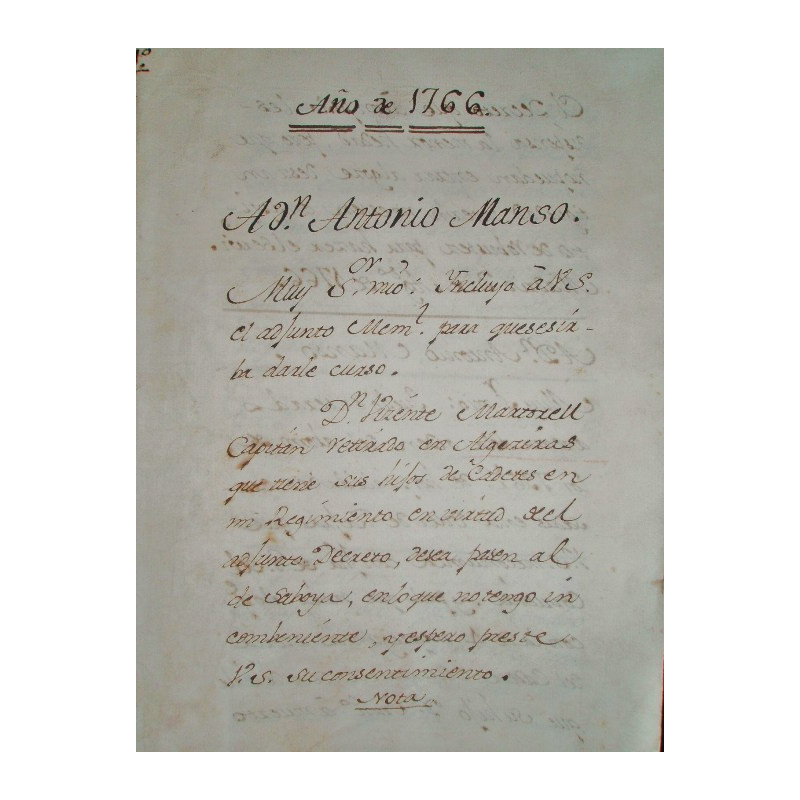 Año de 1766
A Dn. Antonio Manso.
Muy Sor. mio: Yncluyo â V.S.
el adjunto Meml. para que se sir-
ba darle curso.
Dn. Vizente Martorell
Capitán retirado en Algeziras
que tiene sus hijos de Cadetes en
mi Regimiento en virtud del
adjunto Decreto, desea pasen al
de Saboya, en lo que no tengo in
combeniente, y espero preste
V.S. su consentimiento.
Nota